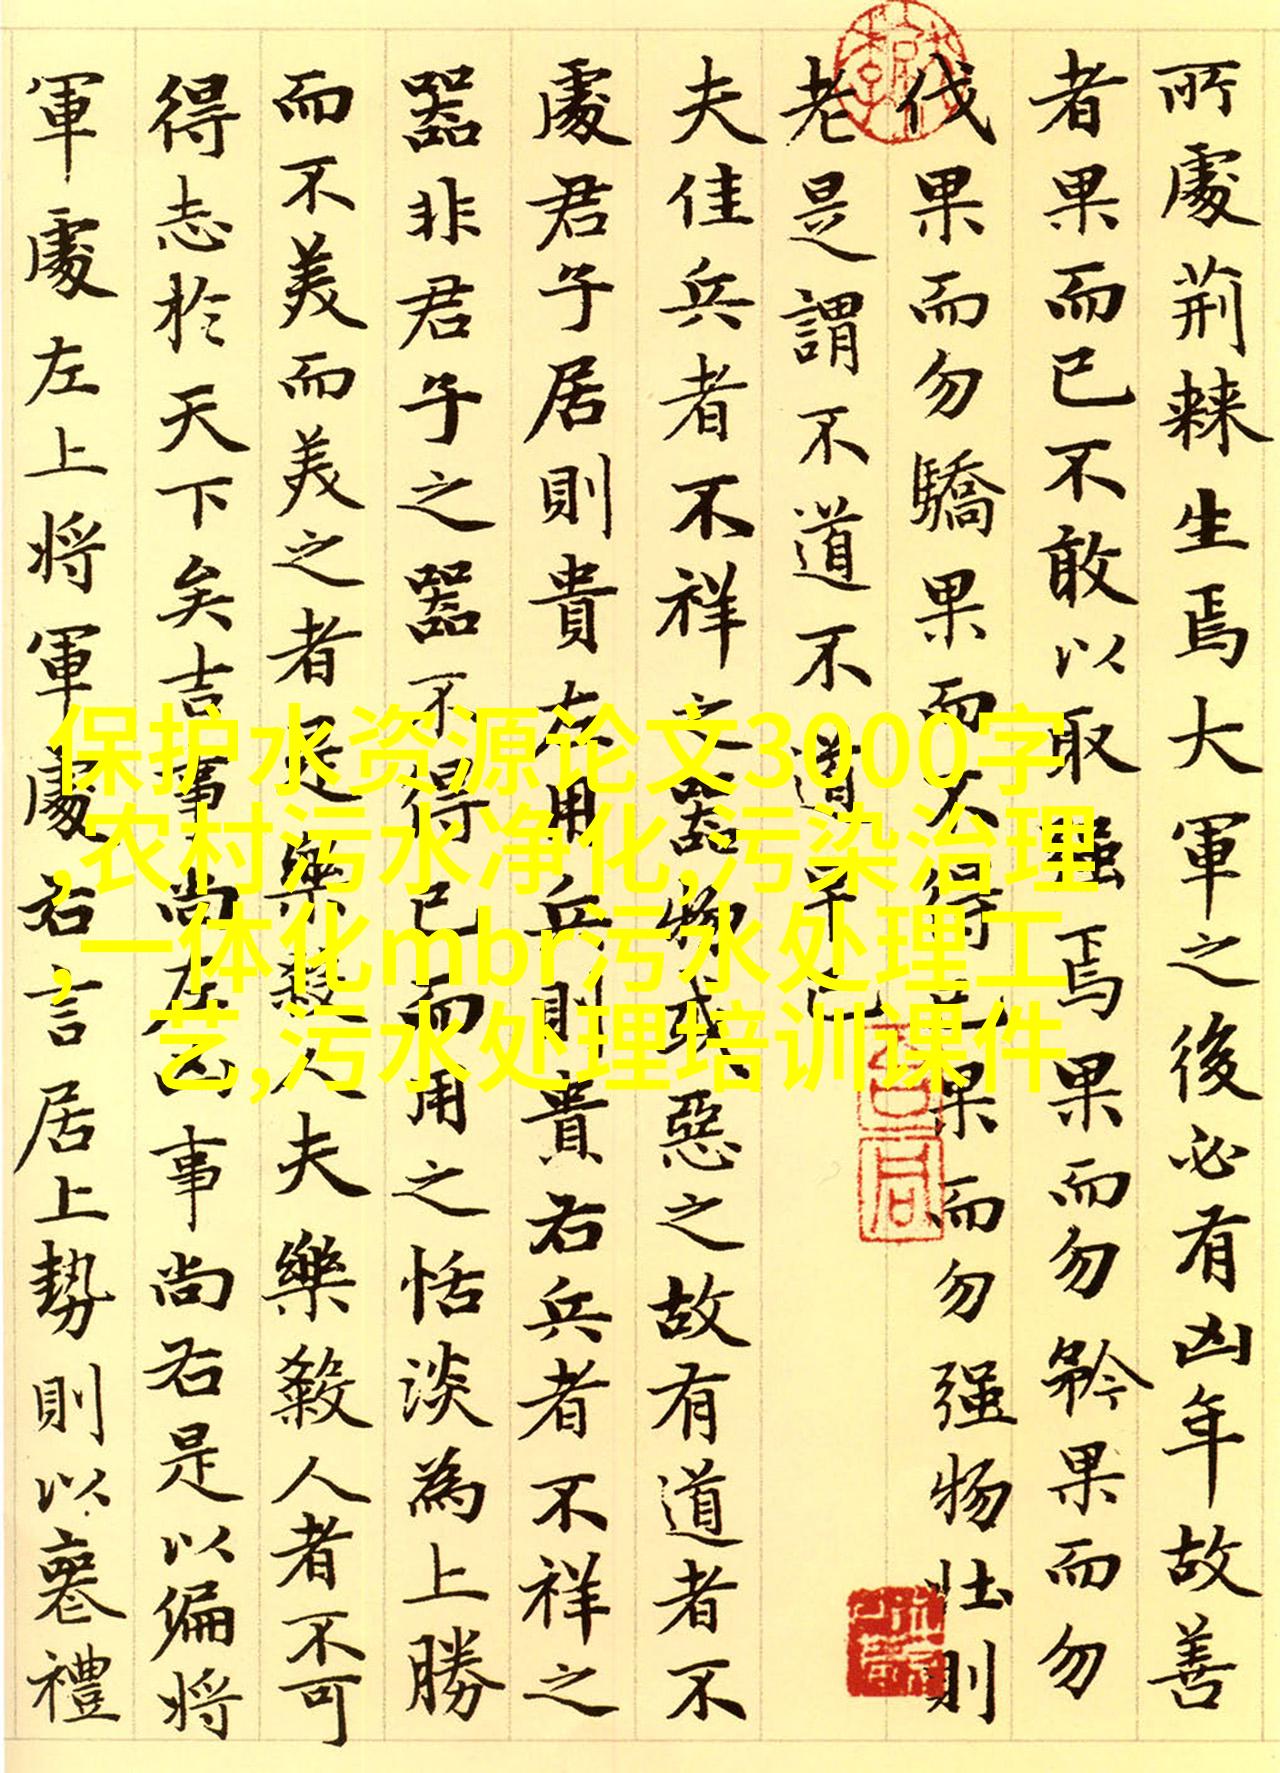 所處荆棘生焉大軍之後必有凶年故善
者果而已不敢以取强焉果而勿矜果而勿
伐果而勿驕果而不得已果而勿强物壮則
老是謂不道不道早已
夫佳兵者不祥之器物或惡之故有道者不
處君子居則貴左用兵則貴右兵者不祥之
器非君子之器不得已而用之恬淡為上勝
而不美而美之者是樂殺人夫樂殺人者不可
得志於天下矣吉事尚左凶事尚右是以偏将
軍處左上将軍處右言居上勢則以喪禮
保护水资源论文3000字
,农村污水净化,污染治理
,一体化mbr污水处理工
艺,污水处理培训课件